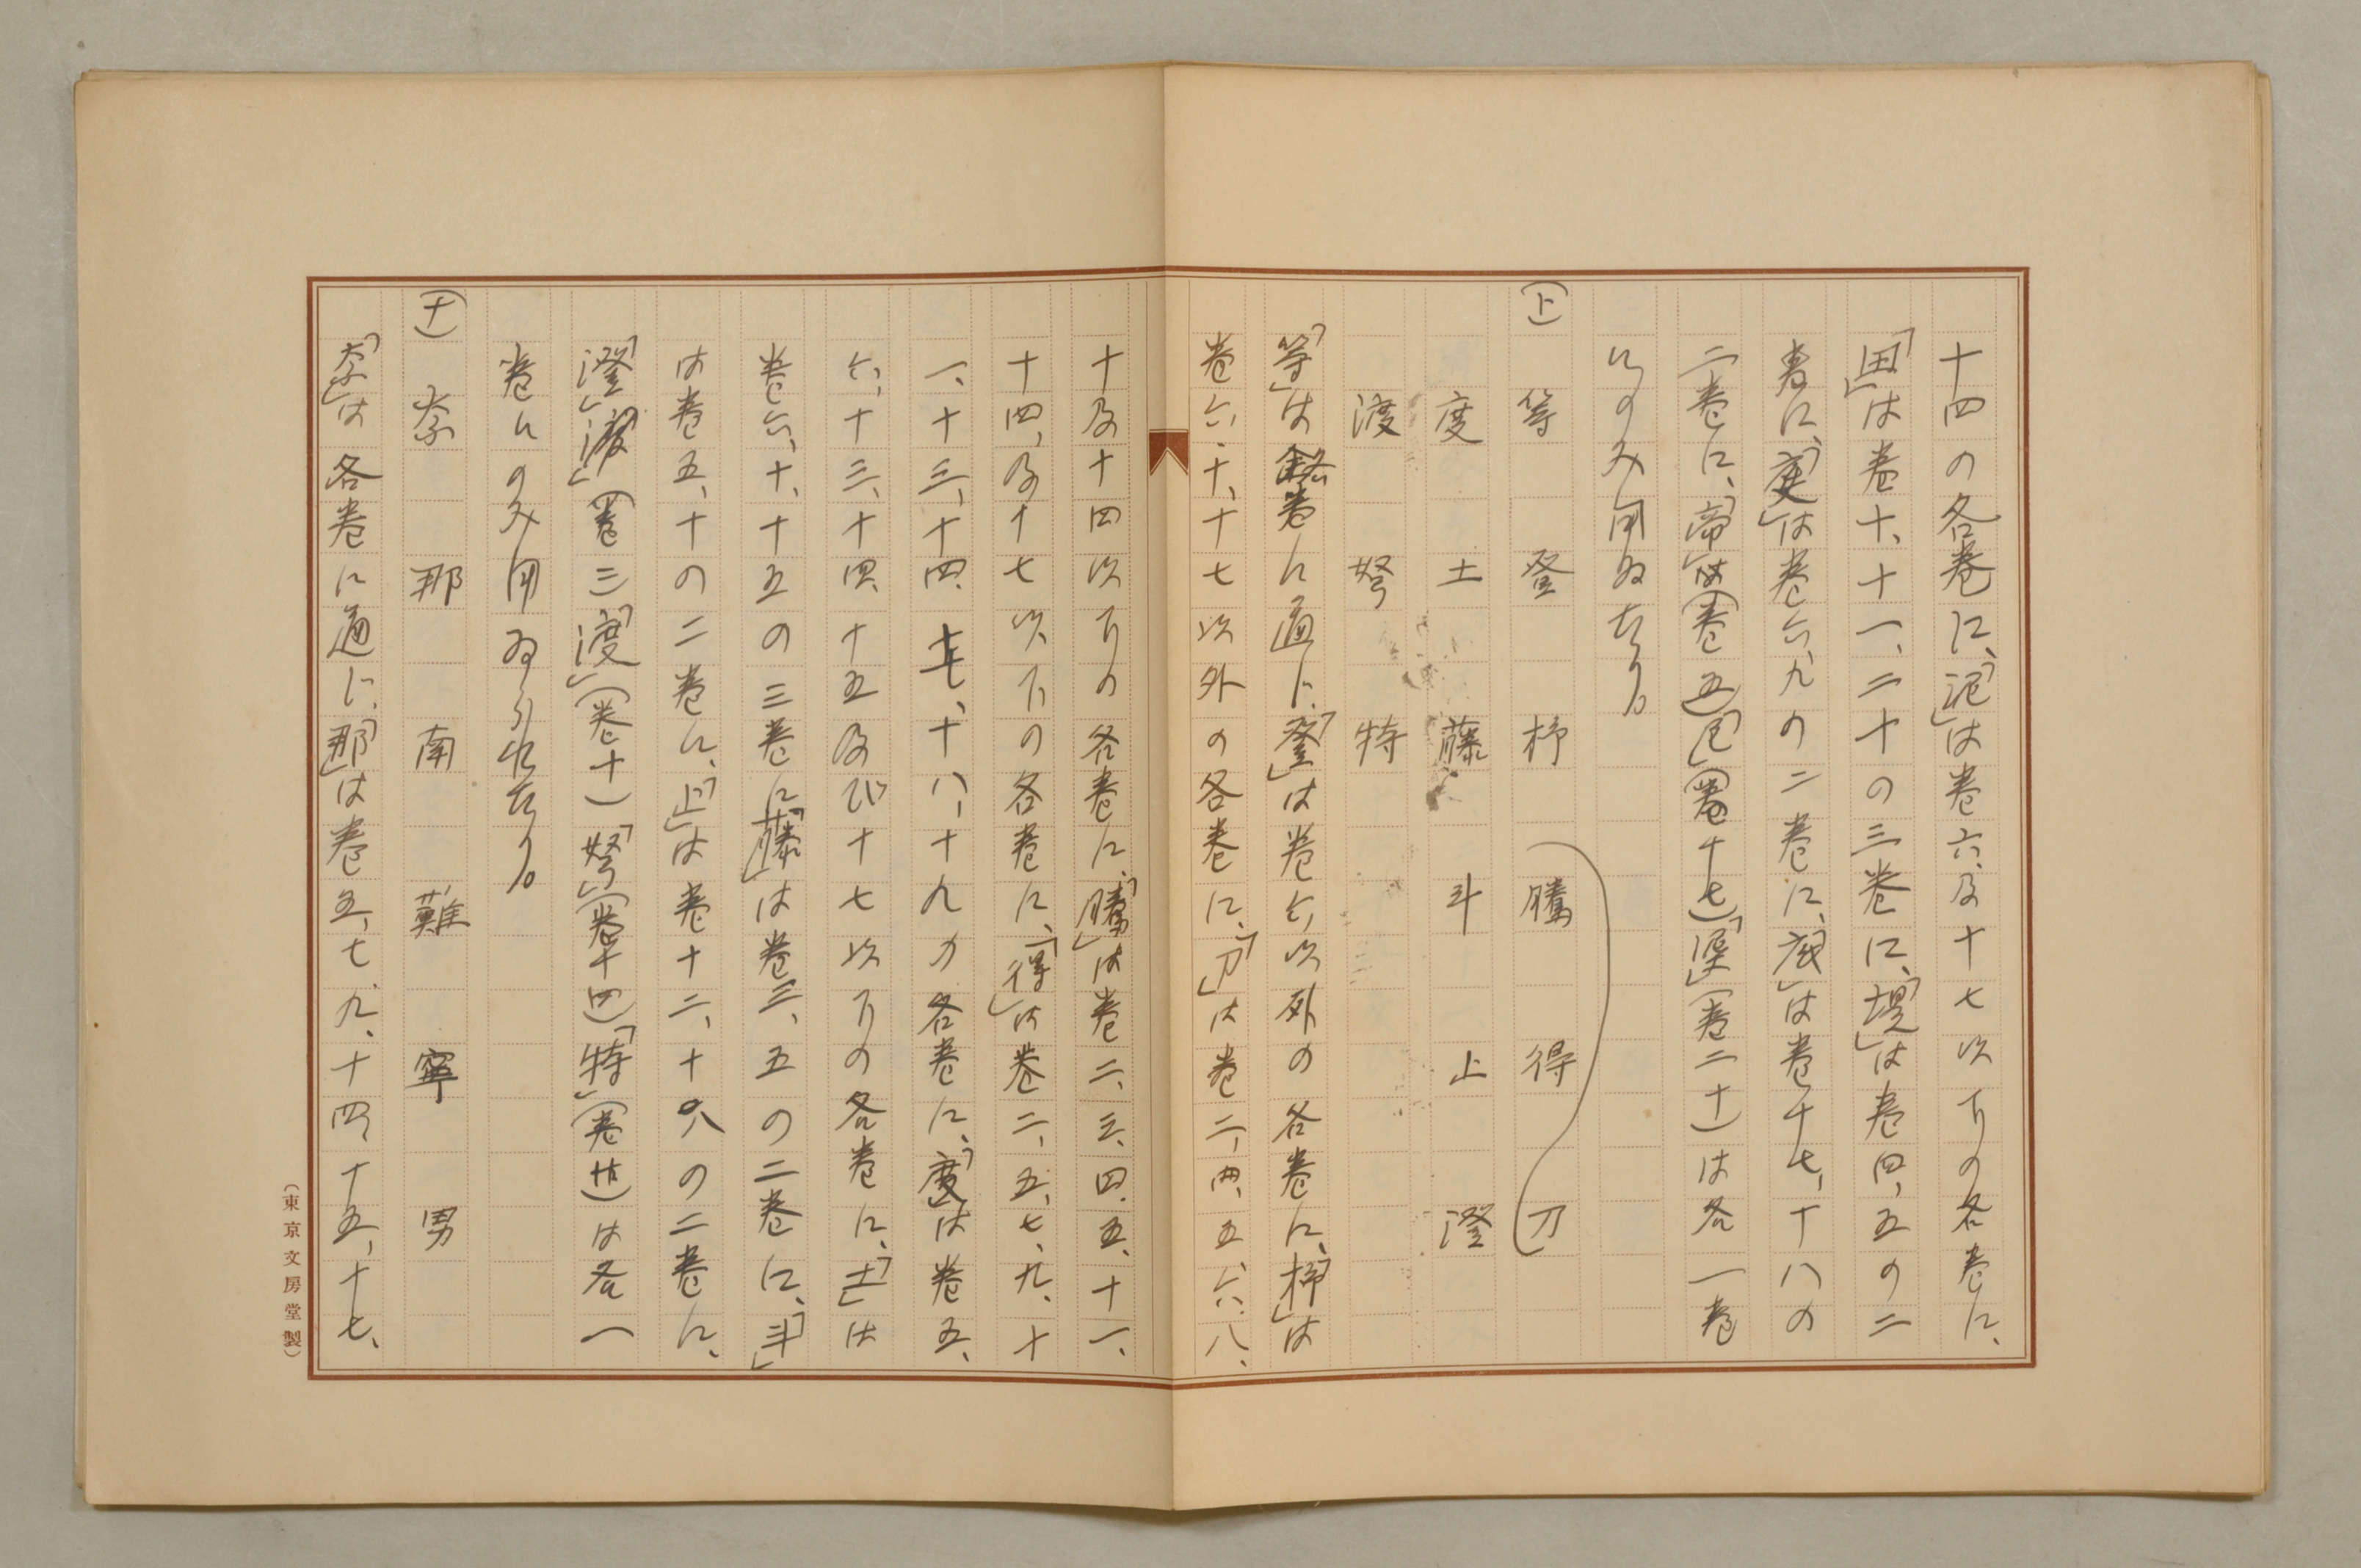 十四の各巻に、「泥」は巻六、及十七以下の各巻に、
「田」は巻十、十一、二十の三巻に、「堤」は巻四、五の二
巻に、「庭」は巻六、九の二巻に、「底」は巻十七、十八の
二巻に、「帝」は(巻五)「(巻十七)「渠」(巻二十)は各一巻
にのみ用ゐたり。
(ト) 等 登 杼 騰 得 刀
度 土 藤 斗 止 澄
渡 怒 特
「等」は各巻に通じ、「登」は巻六以外の各巻に、「杼」は
巻六、十、十七以外の各巻に、「刀」は巻二、四、五、六、八、
十及十四以下の各巻に、「騰」は巻二、三、四、五、十一、
十四、及十七以下の各巻に、「得」は巻二、五、七、九、十
一、十三、十四、十七、十八、十九の各巻に、「度」は巻五、
六、十三、十四、十五及び十七以下の各巻に、「土」は
巻六、十、十五の三巻に「藤」は巻三、五の二巻に、「斗」
は巻五、十の二巻に、「止」は巻十二、十八の二巻に、
「澄」「渡」(巻三)「渡」(巻十)「怒」(巻十四)「特」(巻廿)は各一
巻にのみ用ゐられたり。
(ナ) 奈 那 南 難 寧 男
「奈」は各巻に通じ、「那」は巻五、七、九、十四、十五、十七、
(東京文房堂製)